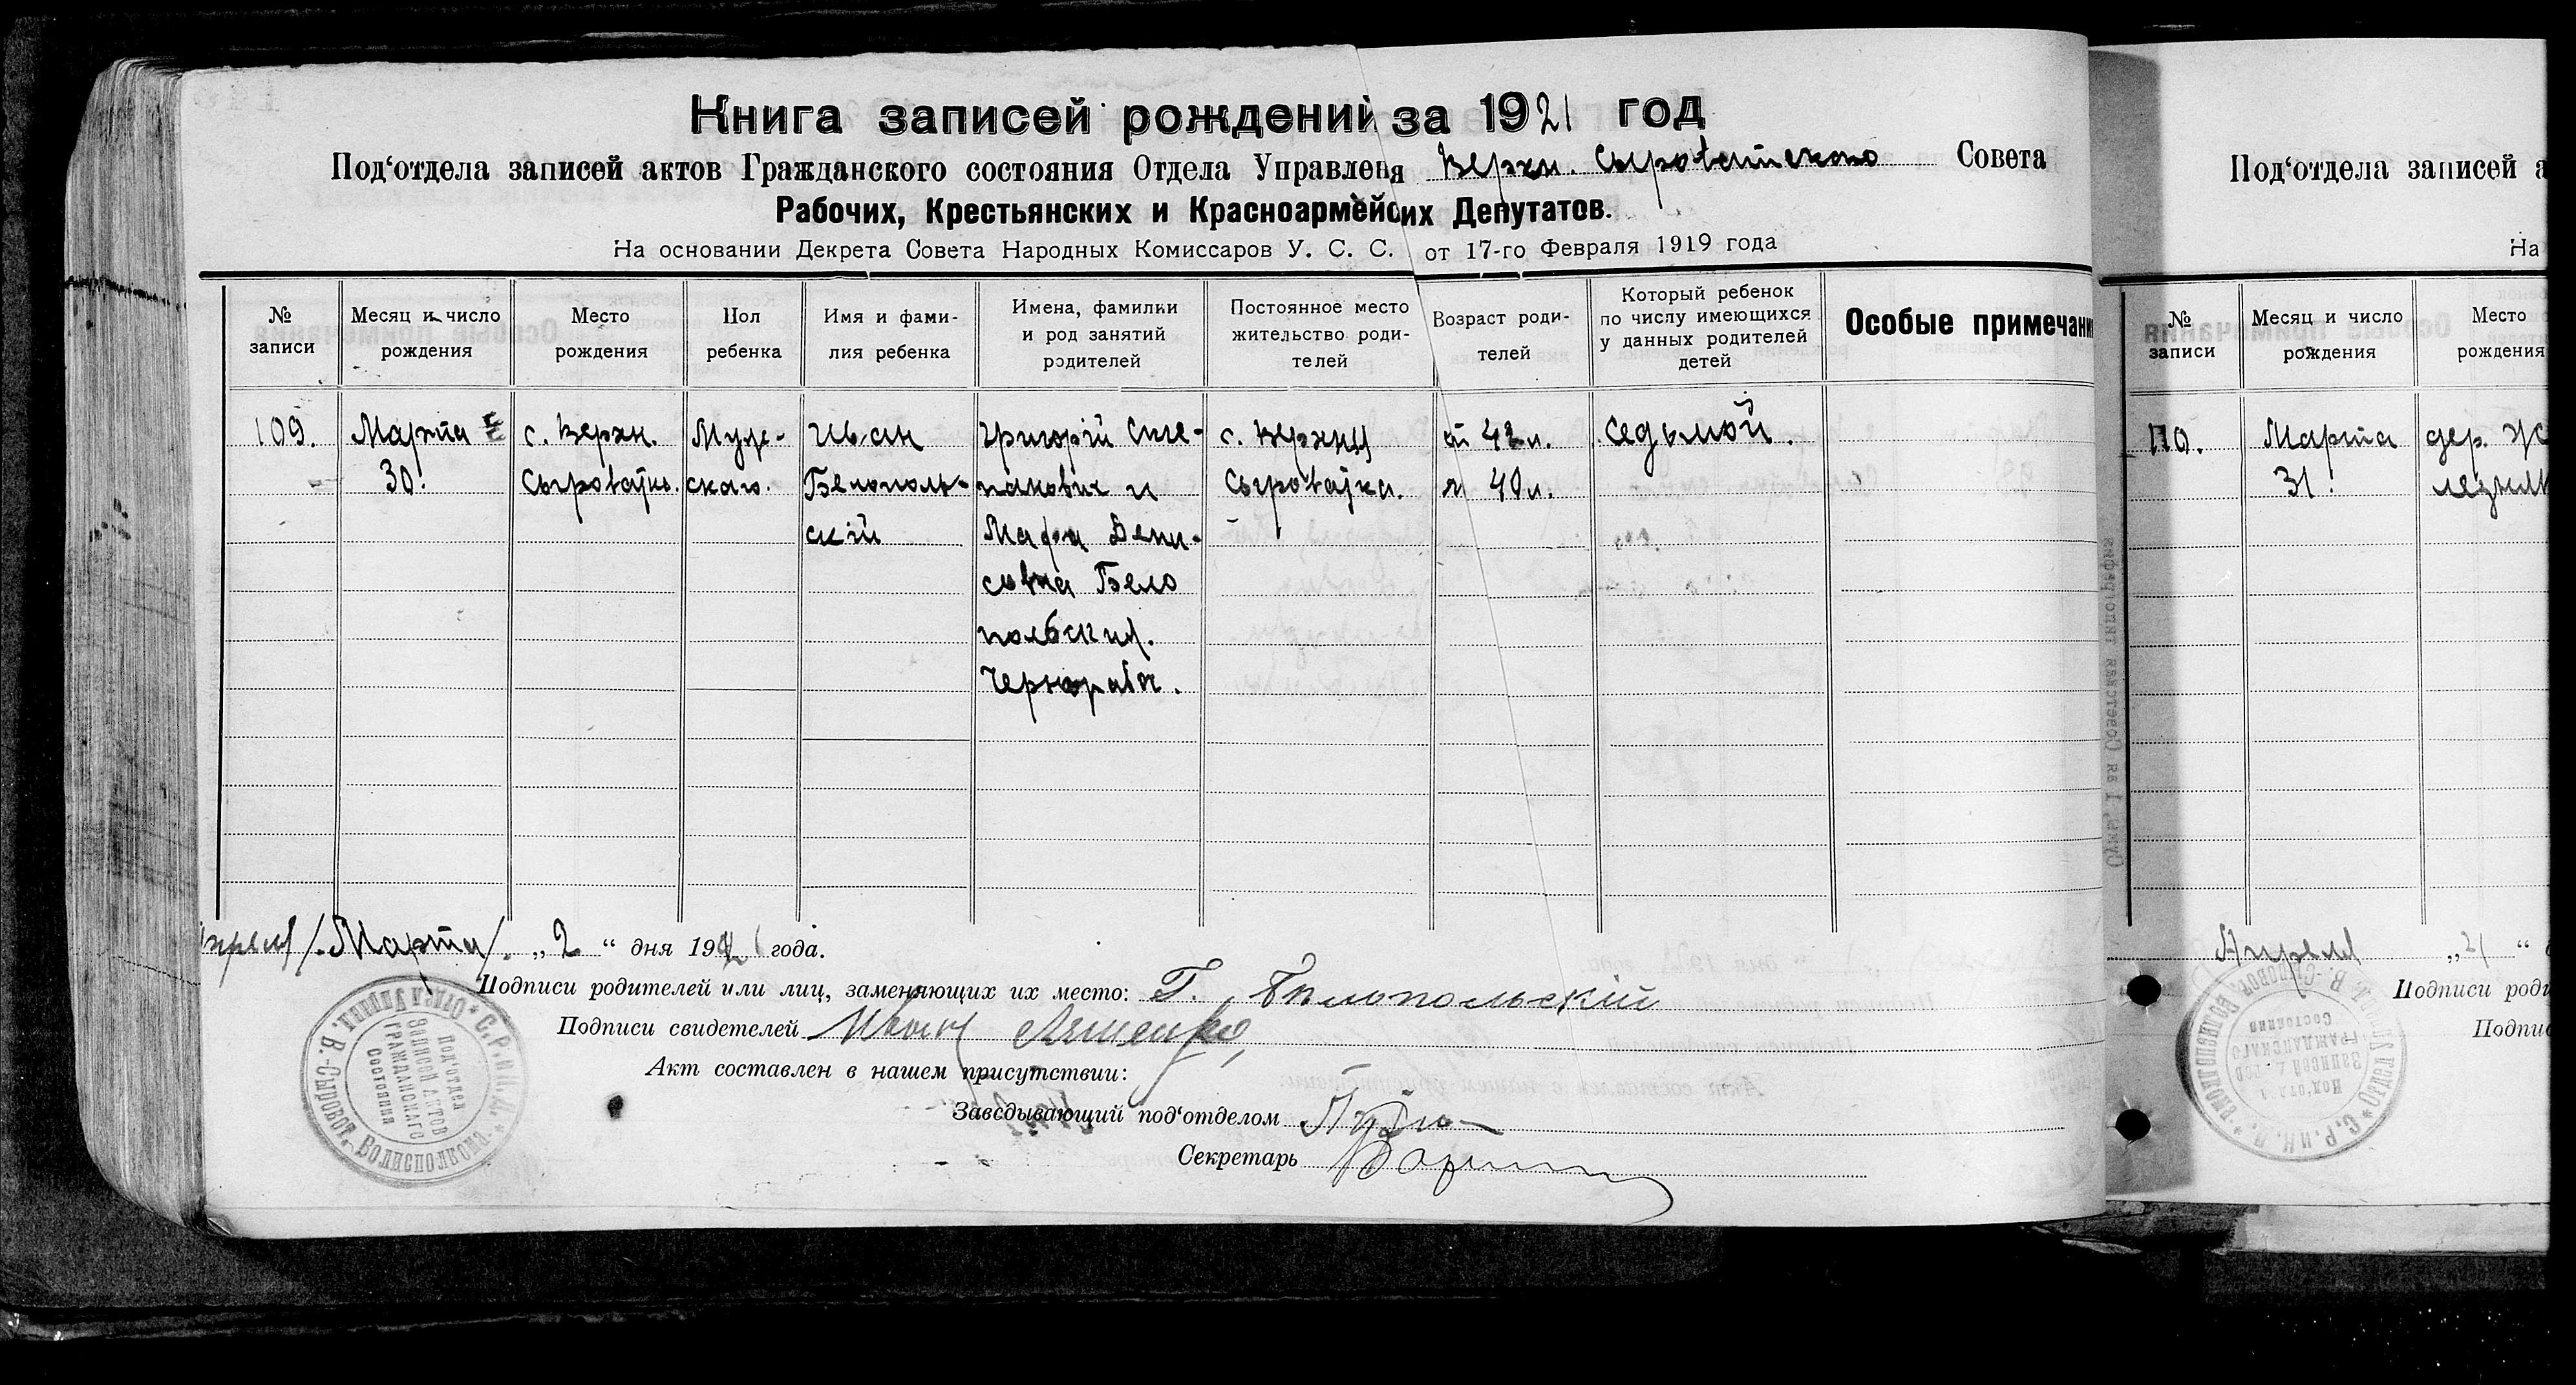 Книга записей рождений за 1921 год
Под‘отдела записей актов Гражданского состояния Отдела Управленя Верхн. Сыроватского Совета
Рабочих, Крестьянских и Красноармейсих Депутатов.
На основании Декрета Совета Народных Комиссаров У. С. С. от 17-го Февраля 1919 года
№ записи
Месяц и число рождения
Место рождения
Пол ребенка
Имя и фами-
лия ребенка
Имена, фамилии
и род занятий
родителей
Постоянное место
жительство роди-
телей
Возраст роди-
телей
Который ребенок
по числу имеющихся
у данных родителей
детей
Особые примечани
109.
Марта
30.
с. Верхн.
Сыроватк.
Муже-
скаго.
Иван
Белополь-
скій
Григорій Сте-
панович и
Дени-
совна Бело
польския.
Чернораб.
с. Верхня
Сыроватка.
42 л.
40 л.
Седьмой.
Марта/. „2“ дня 1921 года.
Подписи родителей или лиц, заменяющих их место: Г. Билопольскій
Подписи свидетелей Иван Ляшенко
Акт составлен в нашем присутствии:
Заведывающий под‘отделом
Секретарь
С.Р.и К.Д. * Отдел Управл. В.-Сыроват. Волисполкома *
Под‘отдел
Записей Актов
Гражданского
Состояния
Под‘отдела записей а
На
№ записи
Месяц и число рождения
Место рождения
110.
Марта
31.
дер.
Апреля „21“
Подписи роди
Подпис